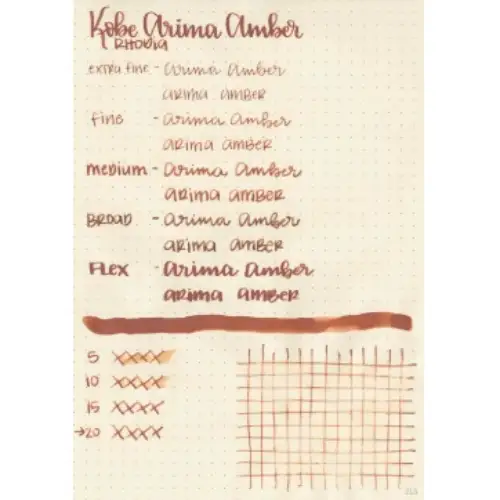 Kobe Arima Amber
RHODIA
extra fine - Arima Amber
arima amber
fine - Arima Amber
arima amber
medium - Arima Amber
arima amber
BROAD - Arima Amber
arima amber
FLEX - Arima Amber
arima amber
5 XXXX
10 XXXX
15 XXXX
→20 XXXX